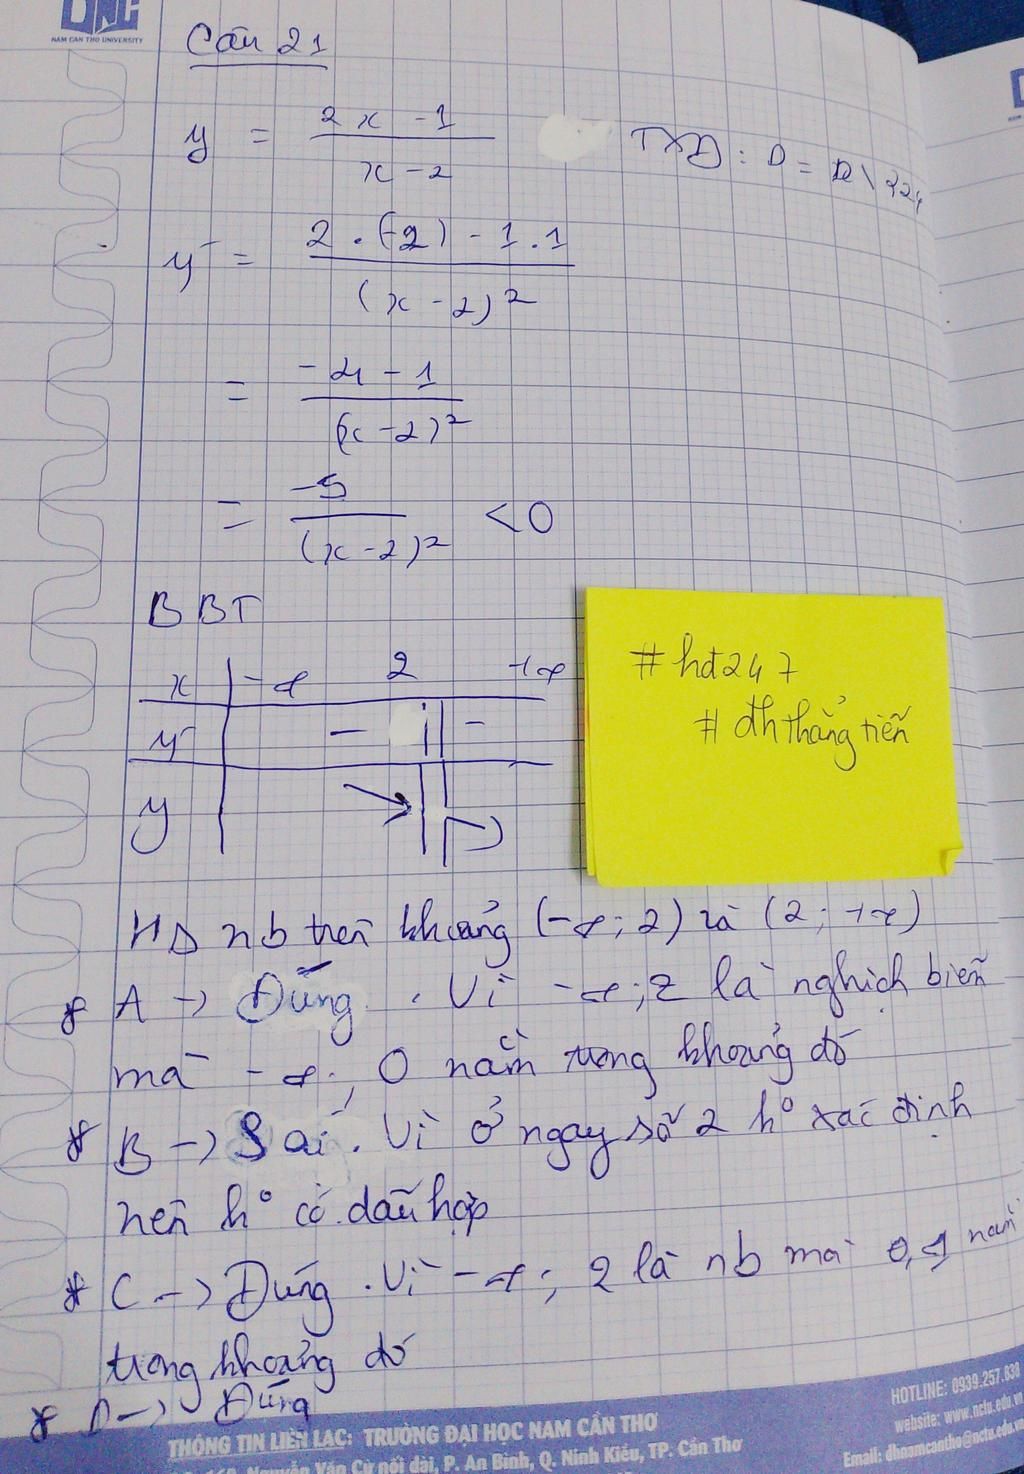 DNC
NAM CAN THO UNIVERSITY
Câu 21
y = (2x - 1)/(x - 2) TXD : D = R \ {2}
y' = (2 . (-2) - 1 . 1)/(x - 2)²
= (-4 - 1)/(x - 2)²
= -5/(x - 2)² < 0
BBT
x -∞ 2 +∞
y' - || -
y
#hđ247
#đhthẳngtiến
HS nb trên khoảng (-∞; 2) và (2; +∞)
* A → Đúng. Vì -∞; 2 là nghịch biến
mà -∞; 0 nằm trong khoảng đó
* B → Sai. Vì ở ngay số 2 h° xác định
nên h° có dấu hợp
* C → Đúng. Vì -∞; 2 là nb mà 0,1 nằm
trong khoảng đó
* D → Đúng
THÔNG TIN LIÊN LẠC: TRƯỜNG ĐẠI HỌC NAM CẦN THƠ
Nguyễn Văn Cừ nối dài, P. An Bình, Q. Ninh Kiều, TP. Cần Thơ
HOTLINE: 0939.257.838
website: www.nctu.edu.vn
Email: dhnamcantho@nctu.edu.vn